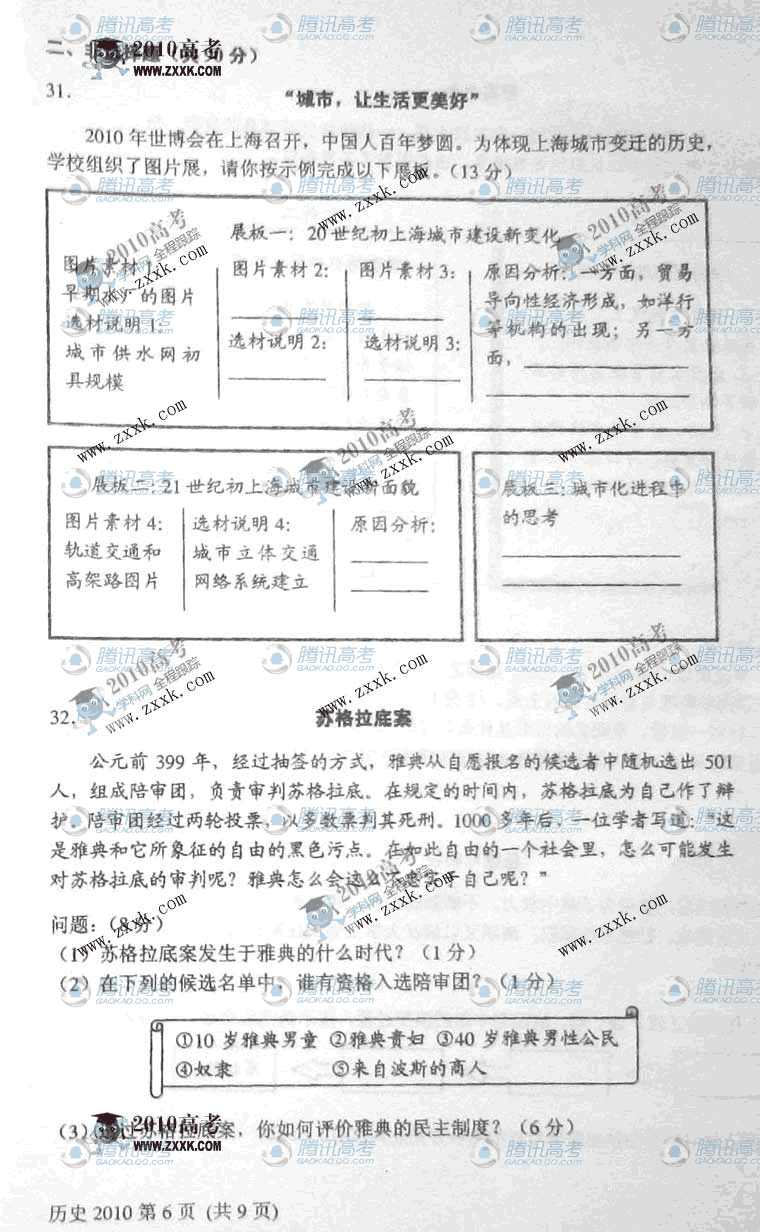 二、非选择题（共 分）
31.
“城市，让生活更美好”
2010 年世博会在上海召开，中国人百年梦圆。为体现上海城市变迁的历史，
学校组织了图片展，请你按示例完成以下展板。（13 分）
展板一：20 世纪初上海城市建设新变化
图片素材
早期 的图片
选材说明 1：
城市供水网初
具规模
图片素材 2：
选材说明 2：
图片素材 3：
选材说明 3：
原因分析：一方面，贸易
导向性经济形成，如洋行
等机构的出现；另一方
面，
展板二：21 世纪初上海城市建设新面貌
图片素材 4：
轨道交通和
高架路图片
选材说明 4：
城市立体交通
网络系统建立
原因分析：
展板三：城市化进程中
的思考
32.
苏格拉底案
公元前 399 年，经过抽签的方式，雅典从自愿报名的候选者中随机选出 501
人，组成陪审团，负责审判苏格拉底。在规定的时间内，苏格拉底为自己作了辩
护。陪审团经过两轮投票，以多数票判其死刑。1000 多年后，一位学者写道：“这
是雅典和它所象征的自由的黑色污点。在如此自由的一个社会里，怎么可能发生
对苏格拉底的审判呢？雅典怎么会这么不忠实于自己呢？”
问题：（8 分）
（1）苏格拉底案发生于雅典的什么时代？（1 分）
（2）在下列的候选名单中，谁有资格入选陪审团？（1 分）
①10 岁雅典男童 ②雅典贵妇 ③40 岁雅典男性公民
④奴隶 ⑤来自波斯的商人
（3）通过苏格拉底案，你如何评价雅典的民主制度？（6 分）
历史 2010 第 6 页 (共 9 页)
2010高考
www.zxxk.com
ZXXK.COM
学科网 全程跟踪
腾讯高考
GAOKAO.QQ.COM